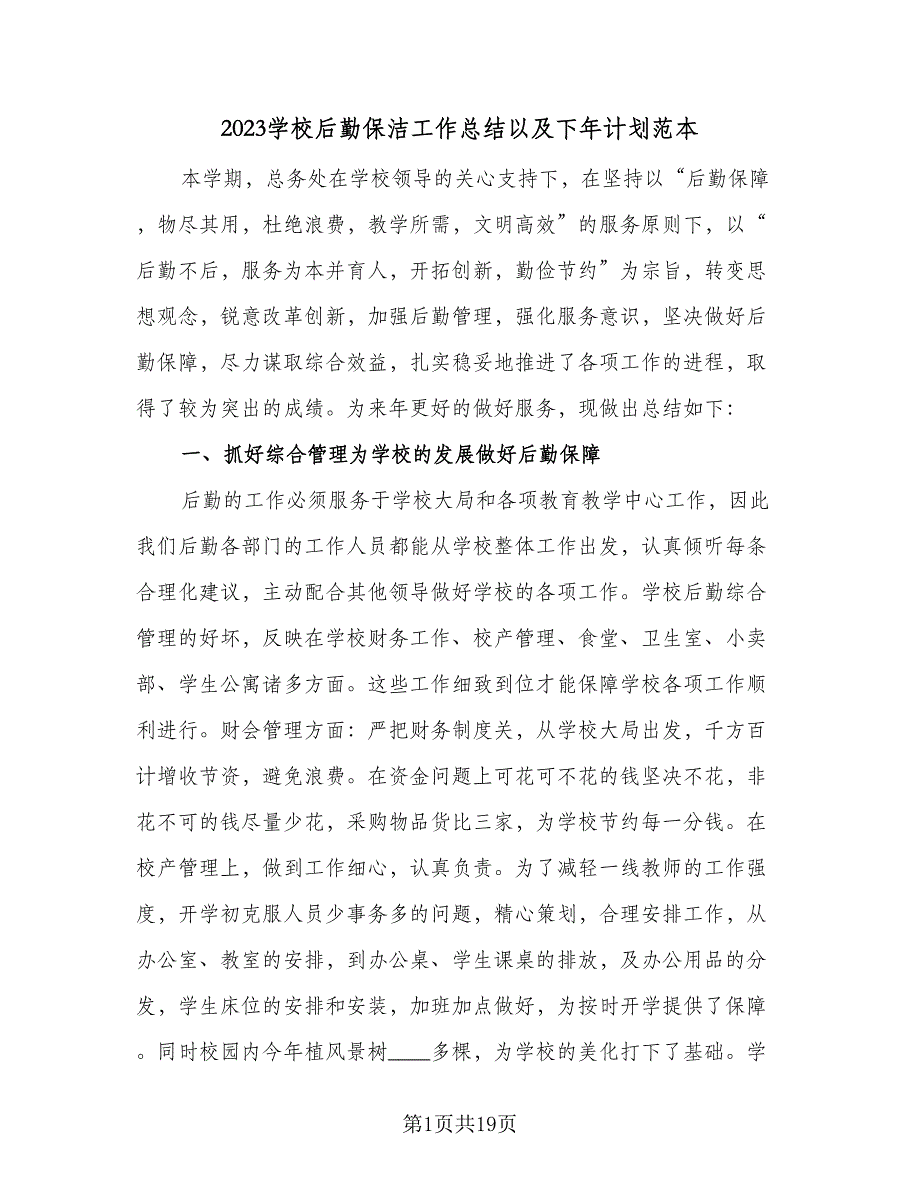 2023学校后勤保洁工作总结以及下年计划范本
本学期，总务处在学校领导的关心支持下，在坚持以“后勤保障
，物尽其用，杜绝浪费，教学所需，文明高效”的服务原则下，以“
后勤不后，服务为本并育人，开拓创新，勤俭节约”为宗旨，转变思
想观念，锐意改革创新，加强后勤管理，强化服务意识，坚决做好后
勤保障，尽力谋取综合效益，扎实稳妥地推进了各项工作的进程，取
得了较为突出的成绩。为来年更好的做好服务，现做出总结如下：
一、抓好综合管理为学校的发展做好后勤保障
后勤的工作必须服务于学校大局和各项教育教学中心工作，因此
我们后勤各部门的工作人员都能从学校整体工作出发，认真倾听每条
合理化建议，主动配合其他领导做好学校的各项工作。学校后勤综合
管理的好坏，反映在学校财务工作、校产管理、食堂、卫生室、小卖
部、学生公寓诸多方面。这些工作细致到位才能保障学校各项工作顺
利进行。财会管理方面：严把财务制度关，从学校大局出发，千方百
计增收节资，避免浪费。在资金问题上可花可不花的钱坚决不花，非
花不可的钱尽量少花，采购物品货比三家，为学校节约每一分钱。在
校产管理上，做到工作细心，认真负责。为了减轻一线教师的工作强
度，开学初克服人员少事务多的问题，精心策划，合理安排工作，从
办公室、教室的安排，到办公桌、学生课桌的排放，及办公用品的分
发，学生床位的安排和安装，加班加点做好，为按时开学提供了保障
。同时校园内今年植风景树____多棵，为学校的美化打下了基础。学
第1页共19页